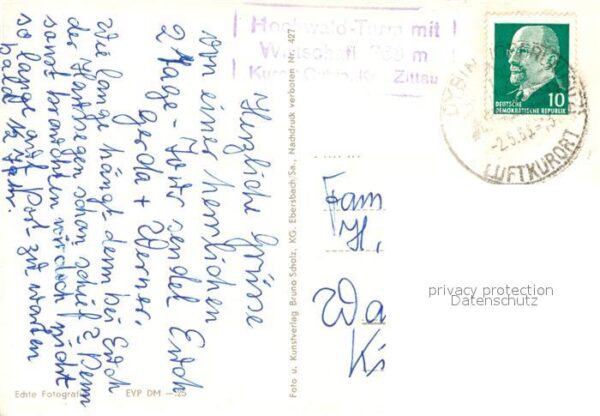 Hochwald-Turm mit
Wirtschaft 749 m
Kurort Oybin, Kr. Zittau
Herzliche Grüsse
von einer herrlichen
2 Tage-Tour sendet Euch
Gerda + Werner.
Wie lange hängt denn bei Euch
der Haussegen schon schief? Denn
sonst brauchten wir doch nicht
so lange auf Post zu warten
bald 1/2 Jahr.
Echte Fotografie EVP DM —.25
Foto u. Kunstverlag Bruno Scholz, KG. Ebersbach/Sa., Nachdruck verboten Nr. 427
DEUTSCHE
DEMOKRATISCHE REPUBLIK
10
LUFTKURORT
Fam
H,
Wa
Ki
privacy protection
Datenschutz